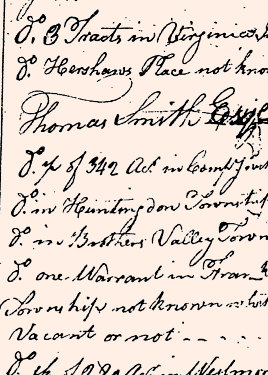 Do. 3 Tracts in Virginia
Do. Hershaws Place not kno
Thomas Smith Esqr
Do. of 342 Acs. in
Do. in Huntingdon Townshi
Do. in Brothers Valley Town
Do. one Warrant in Fran
Township not known whe
Vacant or not - - - -
Do. of Ac in Westmo